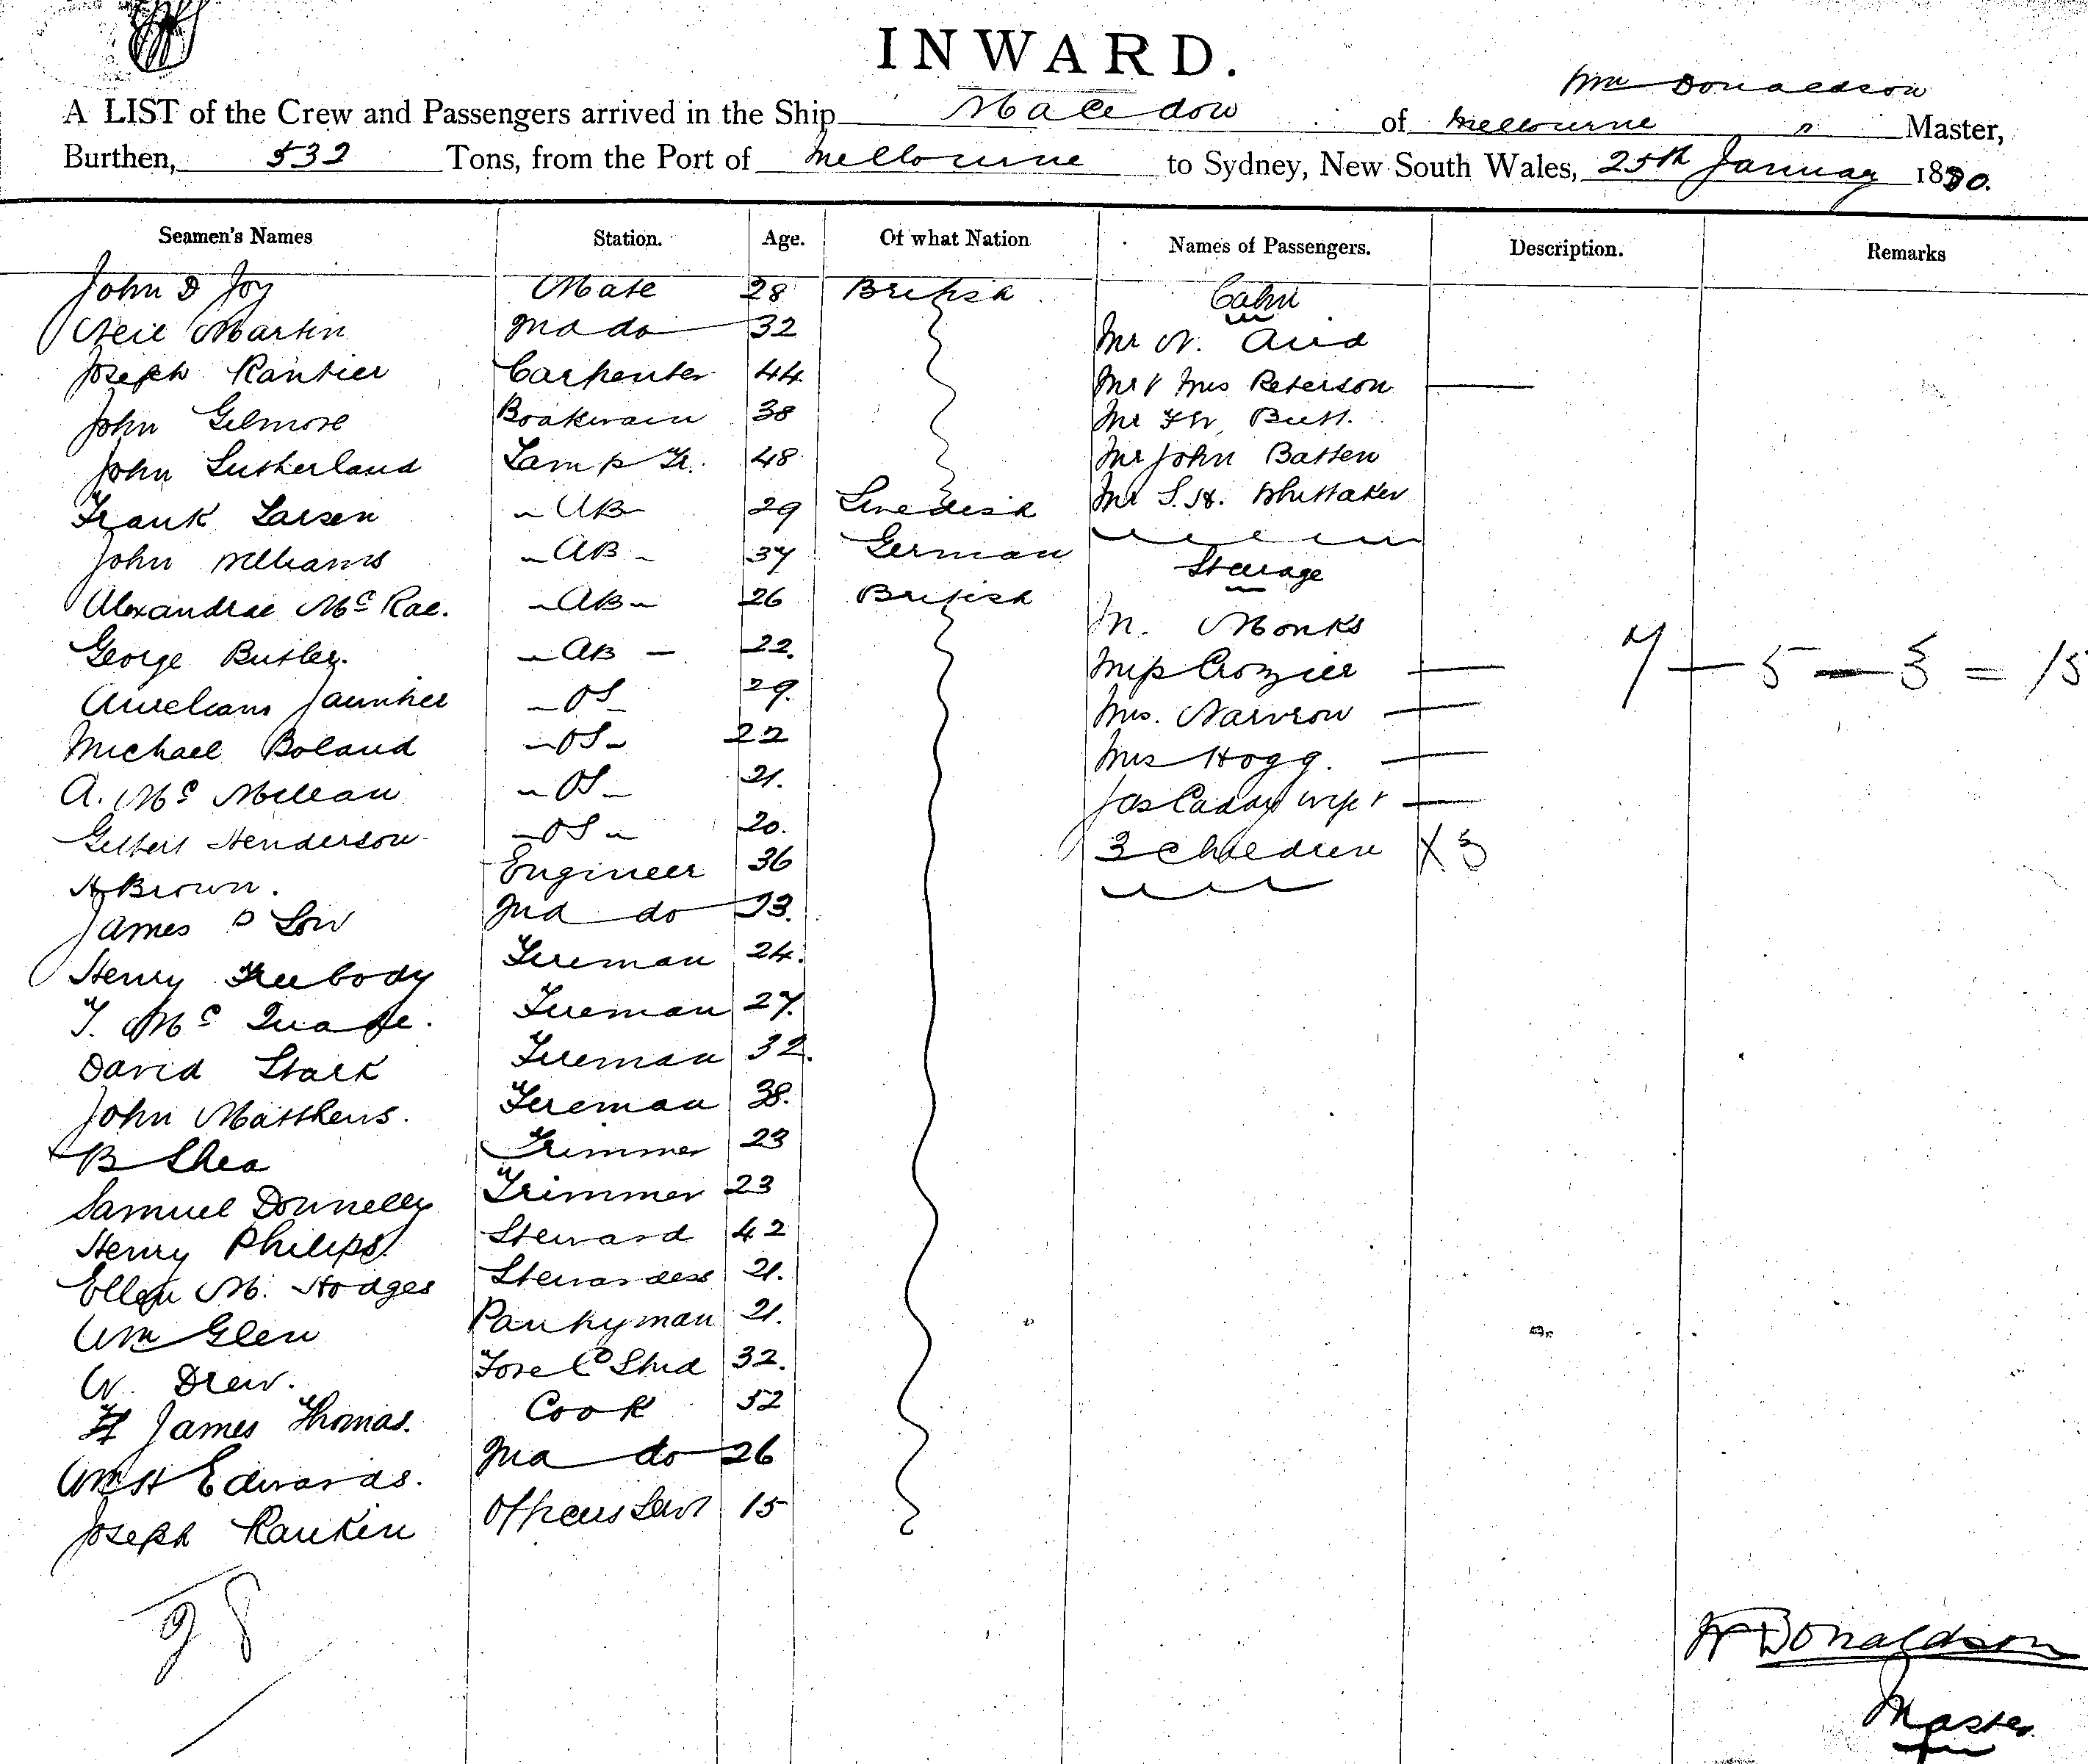 INWARD.
Wm Donaldson
A LIST of the Crew and Passengers arrived in the Ship Macedon of Melbourne " Master,
Burthen, 532 Tons, from the Port of Melbourne to Sydney, New South Wales, 25th January 1880.
Seamen's Names Station. Age. Of what Nation Names of Passengers. Description. Remarks
John D Joy Mate 28 British Cabin
Neil Martin 2nd do 32 Mr N. Avid
Joseph Carpenter 44 Mr & Mrs Peterson
John Gilmore Boatswain 38 Mr FW. Butt.
John Sutherland Lamp Tr. 48 Mr John Batten
Frank Larsen AB 29 Swedish Mr S.H. Whittaker
John Williams AB 37 German Steerage
Alexandrae McRae. AB 26 British M. Monks
George Butler. AB 22. Miss Crozier 7 - 5 - 3 = 15
OS 29. Mrs.
Michael Boland OS 22 Mrs Hogg.
A. Mc OS 21. Jas Caddy wife &
Gilbert Henderson OS 20. 3 Children X 3
H Brown. Engineer 36
James D Low 2nd do 33.
Henry Freebody Fireman 24.
T. McQuade. Fireman 27.
David Stark Fireman 32.
John Matthews. Fireman 38.
B Shea Trimmer 23
Samuel Donnelly Trimmer 23
Henry Philips Steward 42
Ellen M. Hodges Stewardess 21.
Wm Glen Pantryman 21.
W. Drew. Fore C Stwd 32.
James Thomas. Cook 52
Wm H Edwards. 2nd do 26
Joseph Rankin Officers Servt 15
28
W Donaldson
Master